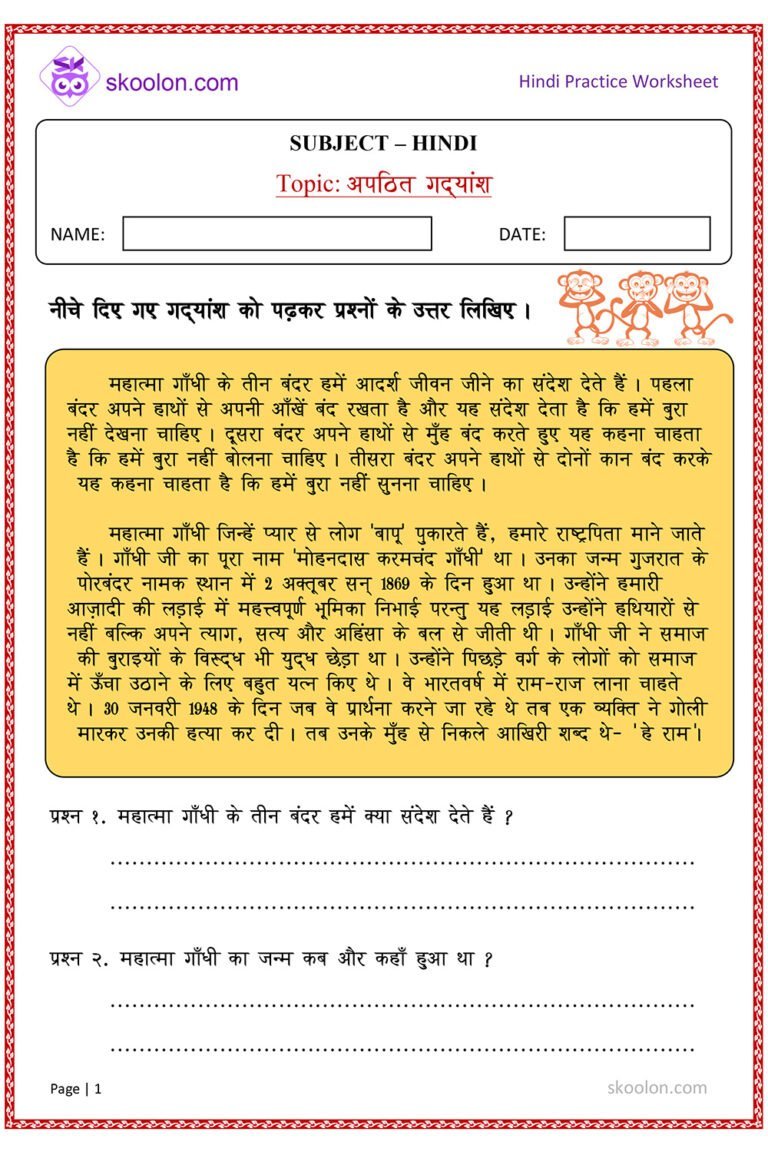 skoolon.com
Hindi Practice Worksheet
SUBJECT – HINDI
Topic: अपठित गद्यांश
NAME:
DATE:
नीचे दिए गए गद्यांश को पढ़कर प्रश्नों के उत्तर लिखिए ।
महात्मा गाँधी के तीन बंदर हमें आदर्श जीवन जीने का संदेश देते हैं । पहला
बंदर अपने हाथों से अपनी आँखें बंद रखता है और यह संदेश देता है कि हमें बुरा
नहीं देखना चाहिए । दूसरा बंदर अपने हाथों से मुँह बंद करते हुए यह कहना चाहता
है कि हमें बुरा नहीं बोलना चाहिए । तीसरा बंदर अपने हाथों से दोनों कान बंद करके
यह कहना चाहता है कि हमें बुरा नहीं सुनना चाहिए ।
महात्मा गाँधी जिन्हें प्यार से लोग 'बापू' पुकारते हैं, हमारे राष्ट्रपिता माने जाते
हैं । गाँधी जी का पूरा नाम 'मोहनदास करमचंद गाँधी' था । उनका जन्म गुजरात के
पोरबंदर नामक स्थान में 2 अक्तूबर सन् 1869 के दिन हुआ था । उन्होंने हमारी
आज़ादी की लड़ाई में महत्त्वपूर्ण भूमिका निभाई परन्तु यह लड़ाई उन्होंने हथियारों से
नहीं बल्कि अपने त्याग, सत्य और अहिंसा के बल से जीती थी । गाँधी जी ने समाज
की बुराइयों के विरुद्ध भी युद्ध छेड़ा था । उन्होंने पिछड़े वर्ग के लोगों को समाज
में ऊँचा उठाने के लिए बहुत यत्न किए थे । वे भारतवर्ष में राम-राज लाना चाहते
थे । 30 जनवरी 1948 के दिन जब वे प्रार्थना करने जा रहे थे तब एक व्यक्ति ने गोली
मारकर उनकी हत्या कर दी । तब उनके मुँह से निकले आखिरी शब्द थे- 'हे राम'।
प्रश्न १. महात्मा गाँधी के तीन बंदर हमें क्या संदेश देते हैं ?
प्रश्न २. महात्मा गाँधी का जन्म कब और कहाँ हुआ था ?
Page | 1
skoolon.com